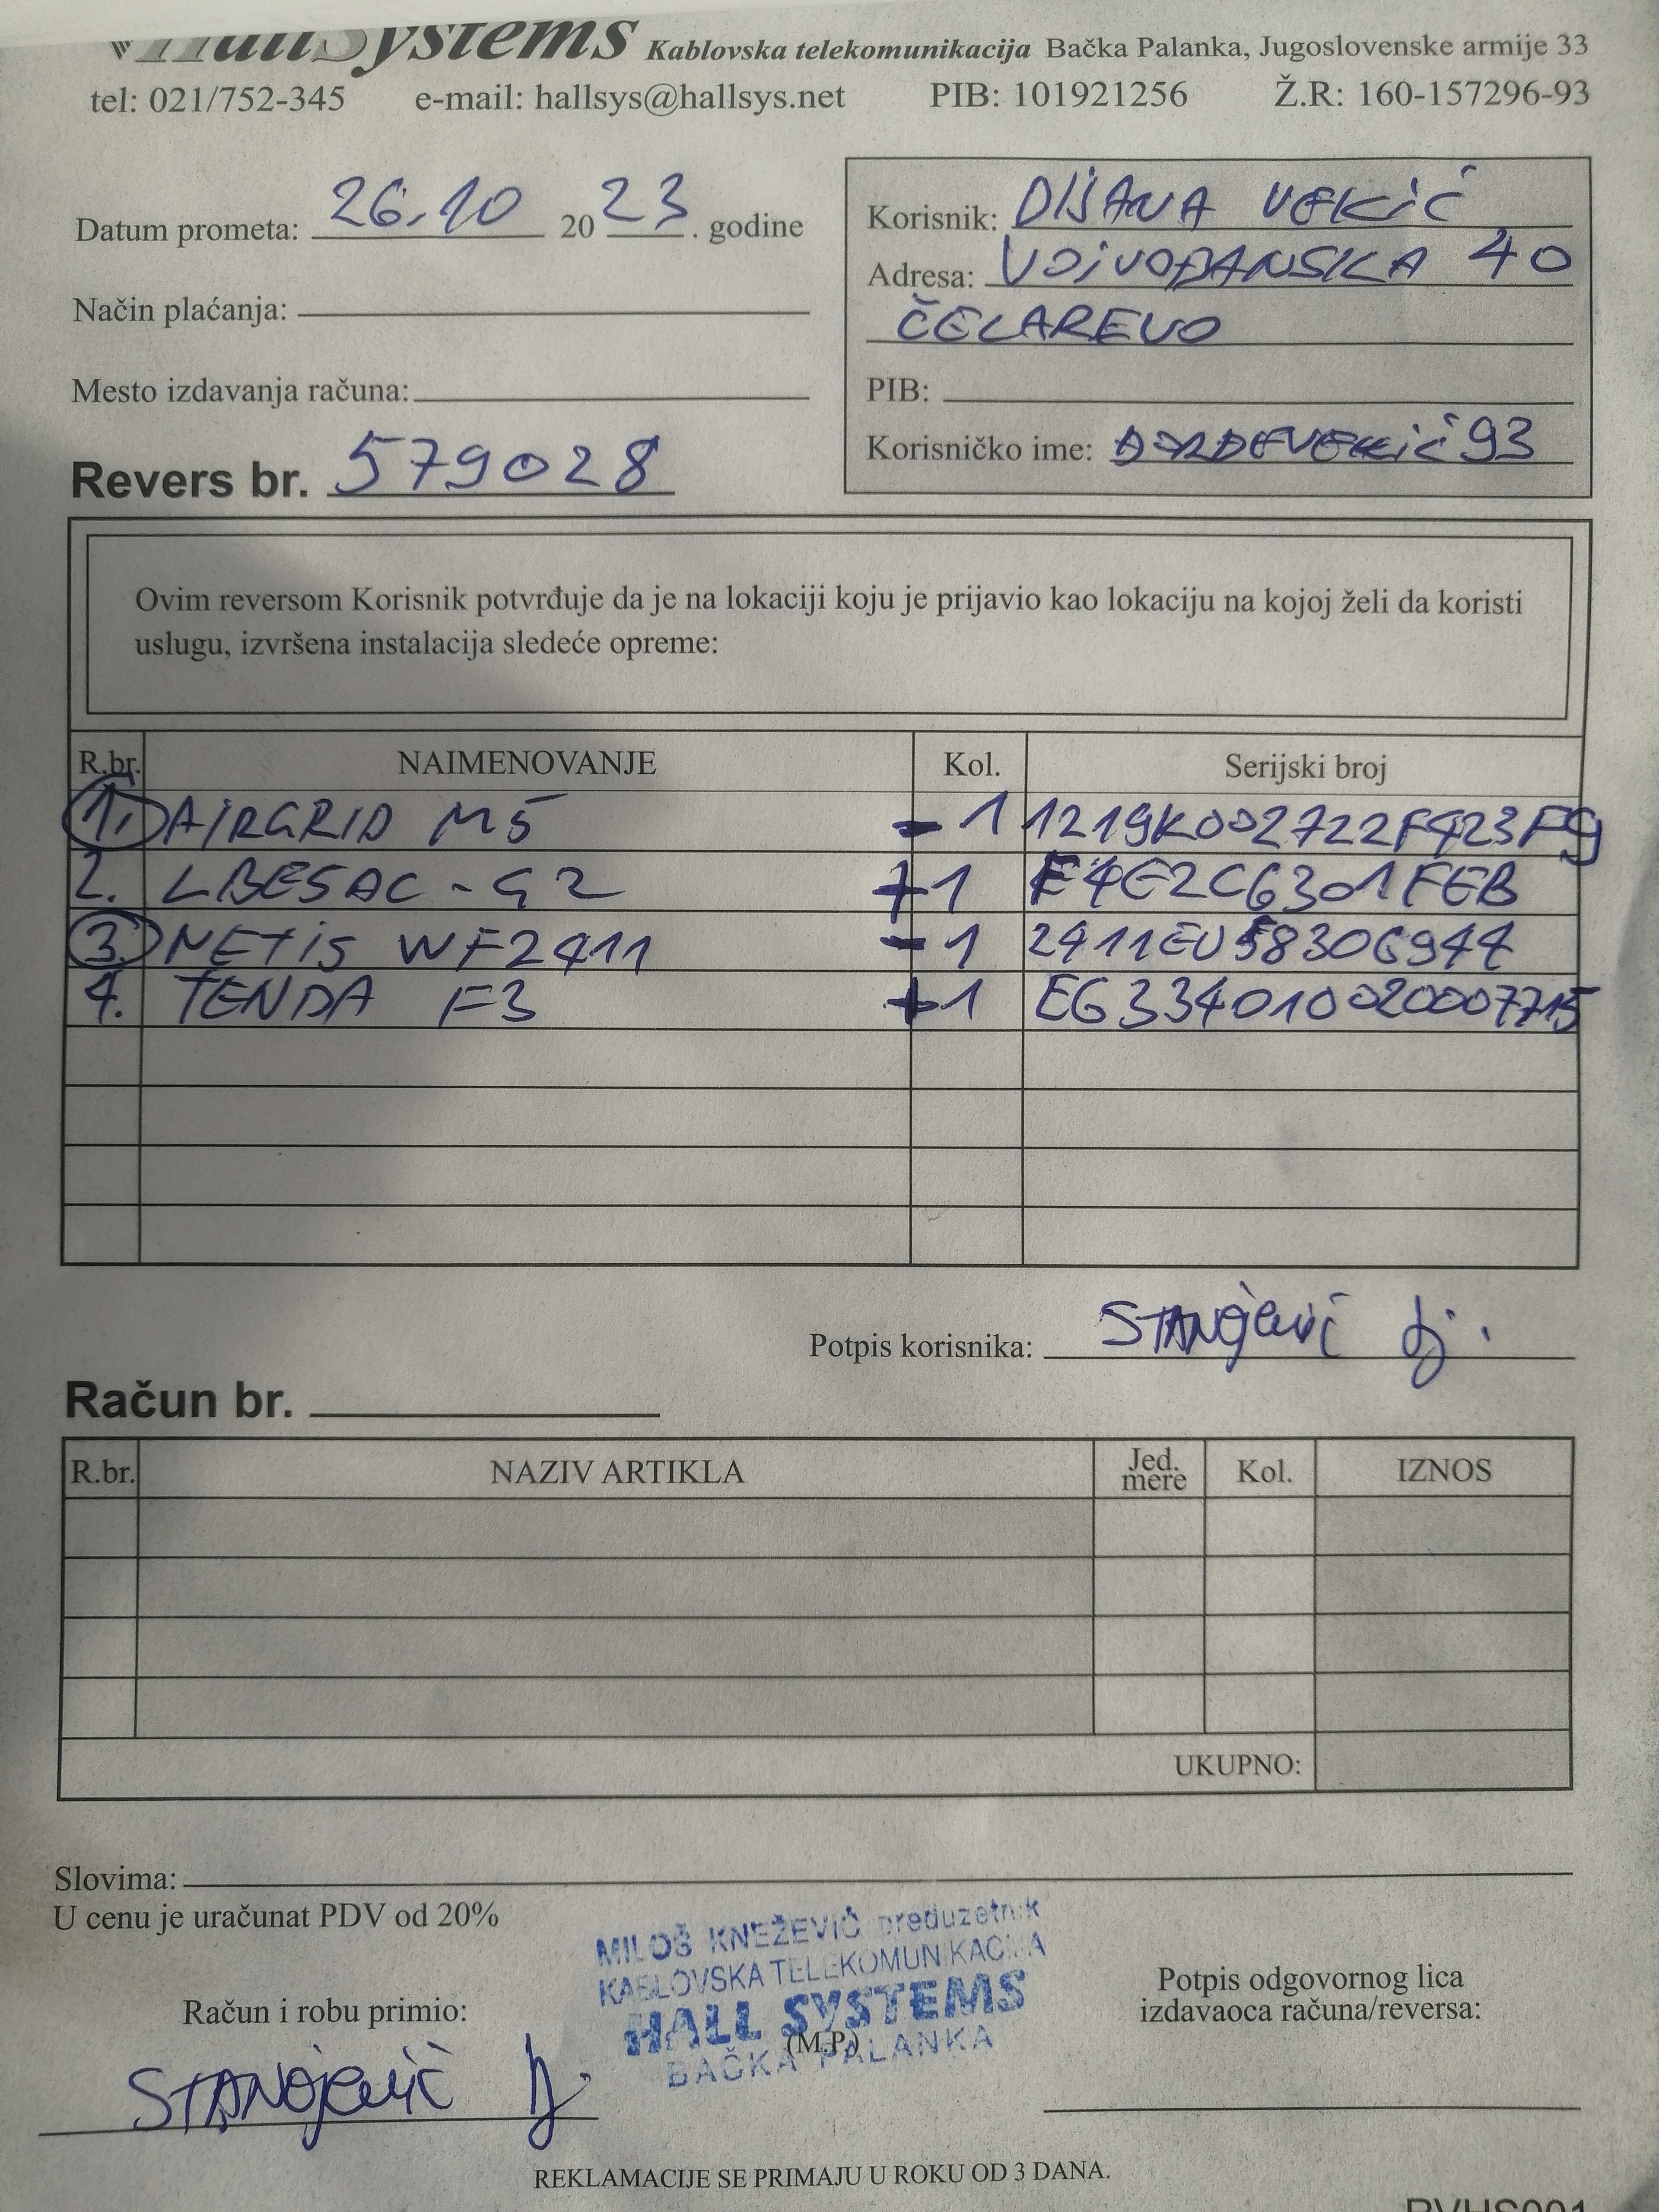 HallSystems Kablovska telekomunikacija Bačka Palanka, Jugoslovenske armije 33
tel: 021/752-345 e-mail: hallsys@hallsys.net PIB: 101921256 Ž.R: 160-157296-93
Datum prometa: 26.10 2023. godine
Način plaćanja:
Mesto izdavanja računa:
Revers br. 579028
Korisnik: DIJANA VEKIĆ
Adresa: VOJVOĐANSKA 40
ČELAREVO
PIB:
Korisničko ime:
Ovim reversom Korisnik potvrđuje da je na lokaciji koju je prijavio kao lokaciju na kojoj želi da koristi
uslugu, izvršena instalacija sledeće opreme:
R.br. NAIMENOVANJE Kol. Serijski broj
1. AIRGRID M5 -1 1219K002722F423F9
2. LBE5AC-G2 +1 F4E2C6301FEB
3. NETIS WF2411 -1 2411EU58306944
4. TENDA F3 +1 E6334010020007715
Potpis korisnika: STANOJEVIĆ Dj.
Račun br.
R.br. NAZIV ARTIKLA Jed. mere Kol. IZNOS
UKUPNO:
Slovima:
U cenu je uračunat PDV od 20%
MILOŠ KNEŽEVIĆ preduzetnik
KABLOVSKA TELEKOMUNIKACIJA
HALL SYSTEMS
(M.P.)
BAČKA PALANKA
Račun i robu primio:
STANOJEVIĆ
Potpis odgovornog lica
izdavaoca računa/reversa:
REKLAMACIJE SE PRIMAJU U ROKU OD 3 DANA.
RVHS001